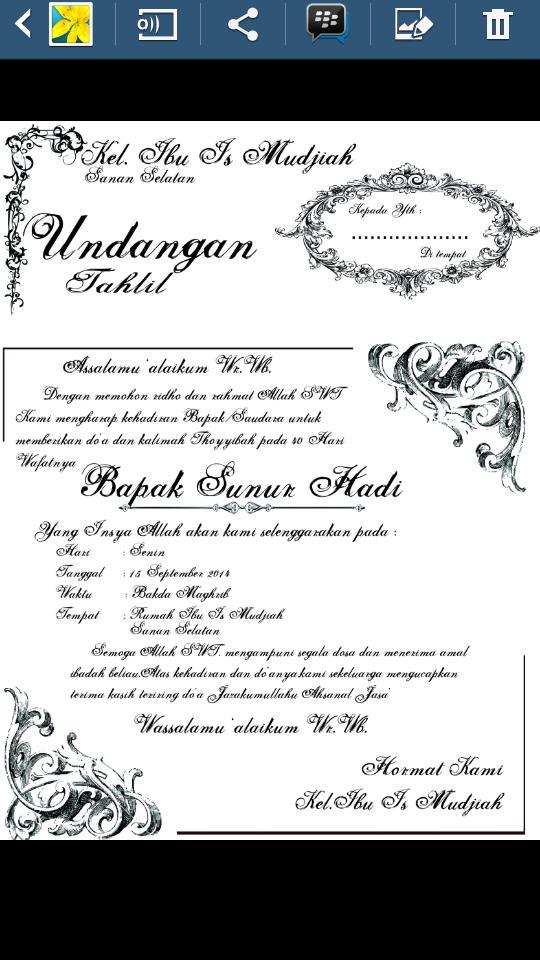 Kel. Ibu Is Mudjiah
Sanan Selatan
Kepada Yth :
..................
Di tempat
Undangan
Tahlil
Assalamu'alaikum Wr.Wb.
Dengan memohon ridho dan rahmat Allah SWT
Kami mengharap kehadiran Bapak/Saudara untuk
memberikan do'a dan kalimah Thoyyibah pada 40 Hari
Wafatnya
Bapak Sunur Hadi
Yang Insya Allah akan kami selenggarakan pada :
Hari : Senin
Tanggal : 15 September 2014
Waktu : Bakda Maghrib
Tempat : Rumah Ibu Is Mudjiah
Sanan Selatan
Semoga Allah SWT. mengampuni segala dosa dan menerima amal
ibadah beliau.Atas kehadiran dan do'anya kami sekeluarga mengucapkan
terima kasih teriring do'a Jazakumullahu Ahsanal Jasa'
Wassalamu'alaikum Wr.Wb.
Hormat Kami
Kel.Ibu Is Mudjiah